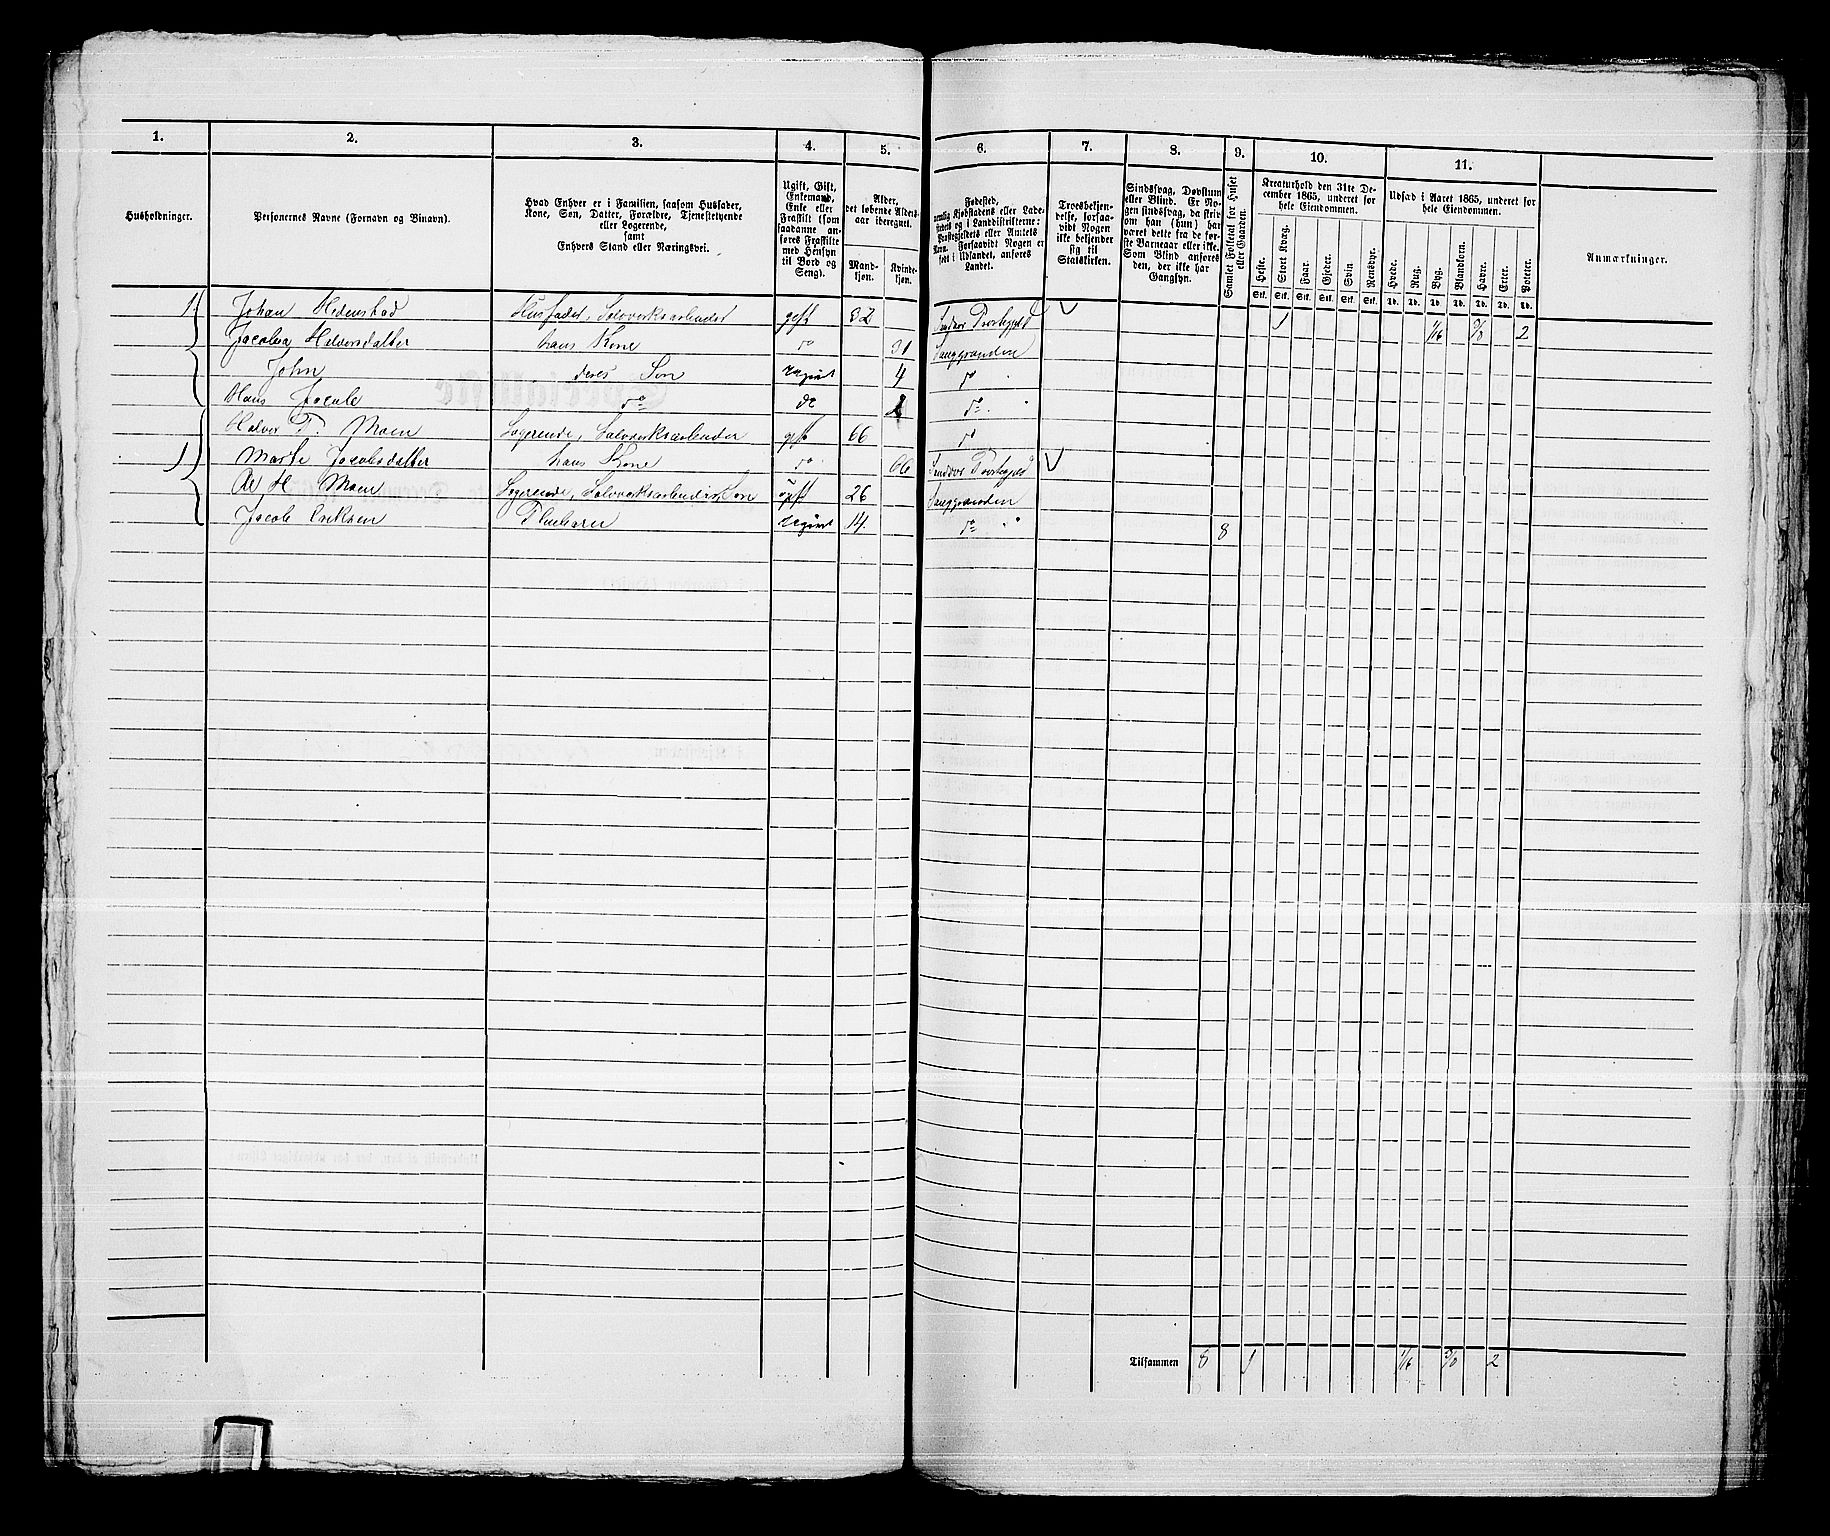 1. 2. 3. 4. 5. 6. 7. 8. 9. 10. 11.
Husholdninger.
Personernes Navne (Fornavn og Binavn).
Hvad Enhver er i Familien, saasom Husfader,
Kone, Søn, Datter, Forældre, Tjenestetyende
eller Logerende,
samt
Enhvers Stand eller Næringsvei.
Ugift, Gift,
Enkemand,
Enke eller
Fraskilt (som
saadanne an-
føres Fraskilte
med Hensyn
til Bord og
Seng).
Alder,
det løbende Alders-
aar iberegnet.
Mand-
kjøn.
Kvinde-
kjøn.
Fødested,
nemlig Kjøbstadens eller Lade-
stedets og i Landdistrikterne:
Præstegjeldets eller Amtets
Navn. Forsaavidt Nogen er
født i Udlandet, anføres
Landet.
Troesbekjen-
delse, forsaa-
vidt Nogen
ikke bekjender
sig til
Statskirken.
Sindssvag, Døvstum
eller Blind. Er No-
gen sindssvag, da skrives
om han (hun) har
været dette fra de før-
ste Barneaar eller ikke.
Som Blind anføres
den, der ikke har
Gangsyn.
Samlet Folketal for Huset
eller Gaarden.
Kreaturhold den 31te De-
cember 1865, underet for
hele Eiendommen.
Heste.
Stort Kvæg.
Faar.
Gjeder.
Svin
Rensdyr.
Stk. Stk. Stk. Stk. Stk. Stk.
Udsæd i Aaret 1865, underet for
hele Eiendommen.
Hvede.
Rug.
Byg.
Blandkorn.
Havre.
Erter.
Poteter.
Td. Td. Td. Td. Td. Td. Td.
Anmærkninger.
1 Johan Hedenstad Husfader, Sølvverksarbeider gift 32 Sandsvær Præstegjeld 1 1/16 3/8 2
Jacobea Halvorsdatter hans Kone do 31
John deres Søn ugivt 4 do "
Hans Jacob do do do "
Halvor T. Moen Logerende, Sølvverksarbeider gift 66 do
1 Marte Jacobsdatter hans Kone do 66 Sandsvær Præstegjeld
H. Moen Logerende, Sølvverksarbeider, Søn gift 26
Jacob Eriksen Pleiebarn ugivt 14 do " 8
Tilsammen 8 1 1/16 3/8 2